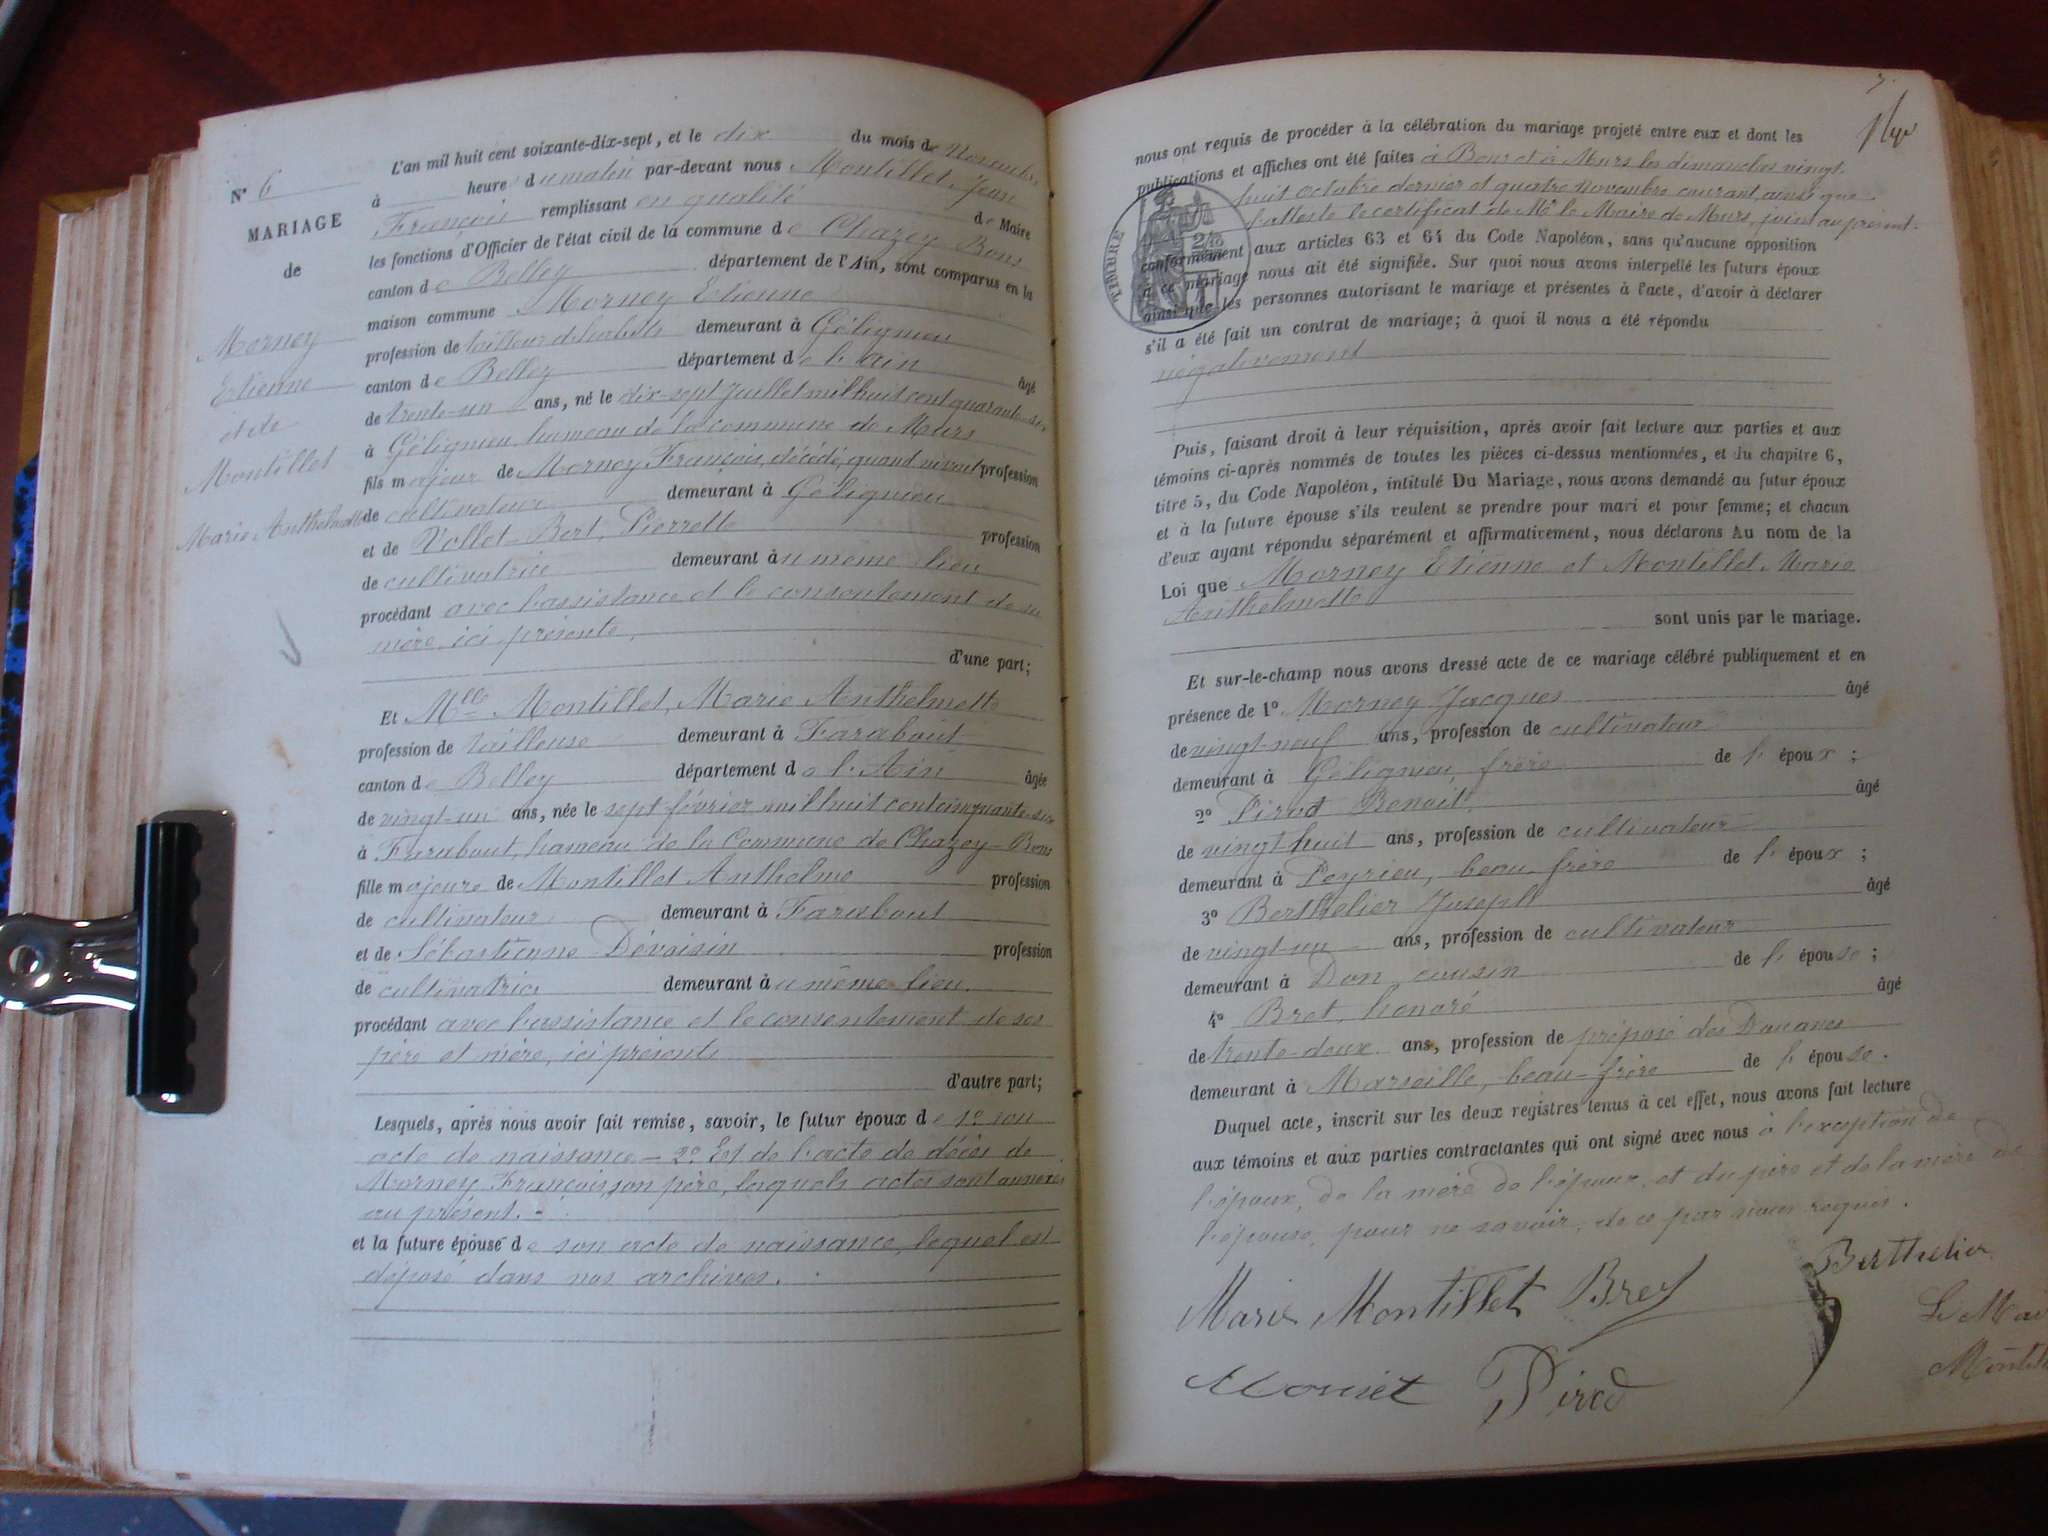 N° 6
MARIAGE
de
Morney
Etienne
et de
Montillet
Marie Anthelmette
L'an mil huit cent soixante-dix-sept, et le dix du mois de Novembre
à heure du matin par-devant nous Montillet Jean
François remplissant en qualité de Maire
les fonctions d'Officier de l'état civil de la commune de Chazey Bons
canton de Belley département de l'Ain, sont comparus en la
maison commune Morney Etienne
profession de tailleur d'habits demeurant à Gélignieu
canton de Belley département de l'Ain âgé
de trente-un ans, né le dix-sept Juillet mil huit cent quarante-six
à Gélignieu, hameau de la commune de Murs
fils majeur de Morney François, décédé, quand vivant profession
de cultivateur demeurant à Gélignieu
et de Vollet-Bert, Pierrette profession
de cultivatrice demeurant au même lieu
procédant avec l'assistance et le consentement de sa
mère, ici présente,
d'une part;
Et Mlle Montillet, Marie Anthelmette
profession de tailleuse demeurant à Farabout
canton de Belley département de l'Ain âgée
de vingt-un ans, née le sept février mil huit cent cinquante-six
à Farabout, hameau de la Commune de Chazey-Bons
fille majeure de Montillet Anthelme profession
de cultivateur demeurant à Farabout
et de Sébastienne Dévoisin profession
de cultivatrice demeurant au même lieu.
procédant avec l'assistance et le consentement de ses
père et mère, ici présents
d'autre part;
Lesquels, après nous avoir fait remise, savoir, le futur époux de 1° son
acte de naissance – 2° Et de l'acte de décès de
Morney François, son père, lesquels actes sont annexés
au présent. -
et la future épouse de son acte de naissance, lequel est
déposé dans nos archives.
nous ont requis de procéder à la célébration du mariage projeté entre eux et dont les
publications et affiches ont été faites à Bons et à Murs les dimanches vingt-
huit octobre dernier et quatre novembre courant, ainsi que
l'atteste le certificat de Mr le Maire de Murs, joint au présent.
TIMBRE
conformément aux articles 63 et 64 du Code Napoléon, sans qu'aucune opposition
à ce mariage nous ait été signifiée. Sur quoi nous avons interpellé les futurs époux
ainsi que les personnes autorisant le mariage et présentes à l'acte, d'avoir à déclarer
s'il a été fait un contrat de mariage; à quoi il nous a été répondu
négativement
Puis, faisant droit à leur réquisition, après avoir fait lecture aux parties et aux
témoins ci-après nommés de toutes les pièces ci-dessus mentionnées, et du chapitre 6,
titre 5, du Code Napoléon, intitulé Du Mariage, nous avons demandé au futur époux
et à la future épouse s'ils veulent se prendre pour mari et pour femme; et chacun
d'eux ayant répondu séparément et affirmativement, nous déclarons Au nom de la
Loi que Morney Etienne et Montillet, Marie
Anthelmette
sont unis par le mariage.
Et sur-le-champ nous avons dressé acte de ce mariage célébré publiquement et en
présence de 1° Morney Jacques âgé
de vingt-neuf ans, profession de cultivateur
demeurant à Gélignieu, frère de l'époux;
2° Pirod Benoit, âgé
de vingt huit ans, profession de cultivateur
demeurant à Peyrieu, beau-frère de l'époux;
3° Berthelier Joseph âgé
de vingt-un ans, profession de cultivateur
demeurant à Don, cousin de l'épouse;
4° Bret, honoré âgé
de trente-deux ans, profession de préposé des Douanes
demeurant à Marseille, beau-frère de l'épouse.
Duquel acte, inscrit sur les deux registres tenus à cet effet, nous avons fait lecture
aux témoins et aux parties contractantes qui ont signé avec nous à l'exception de
l'époux, de la mère de l'époux, et du père et de la mère de
l'épouse, pour ne savoir, de ce par nous requis.
Marie Montillet Bret Berthelier
Pirod
Le Mai
Montil